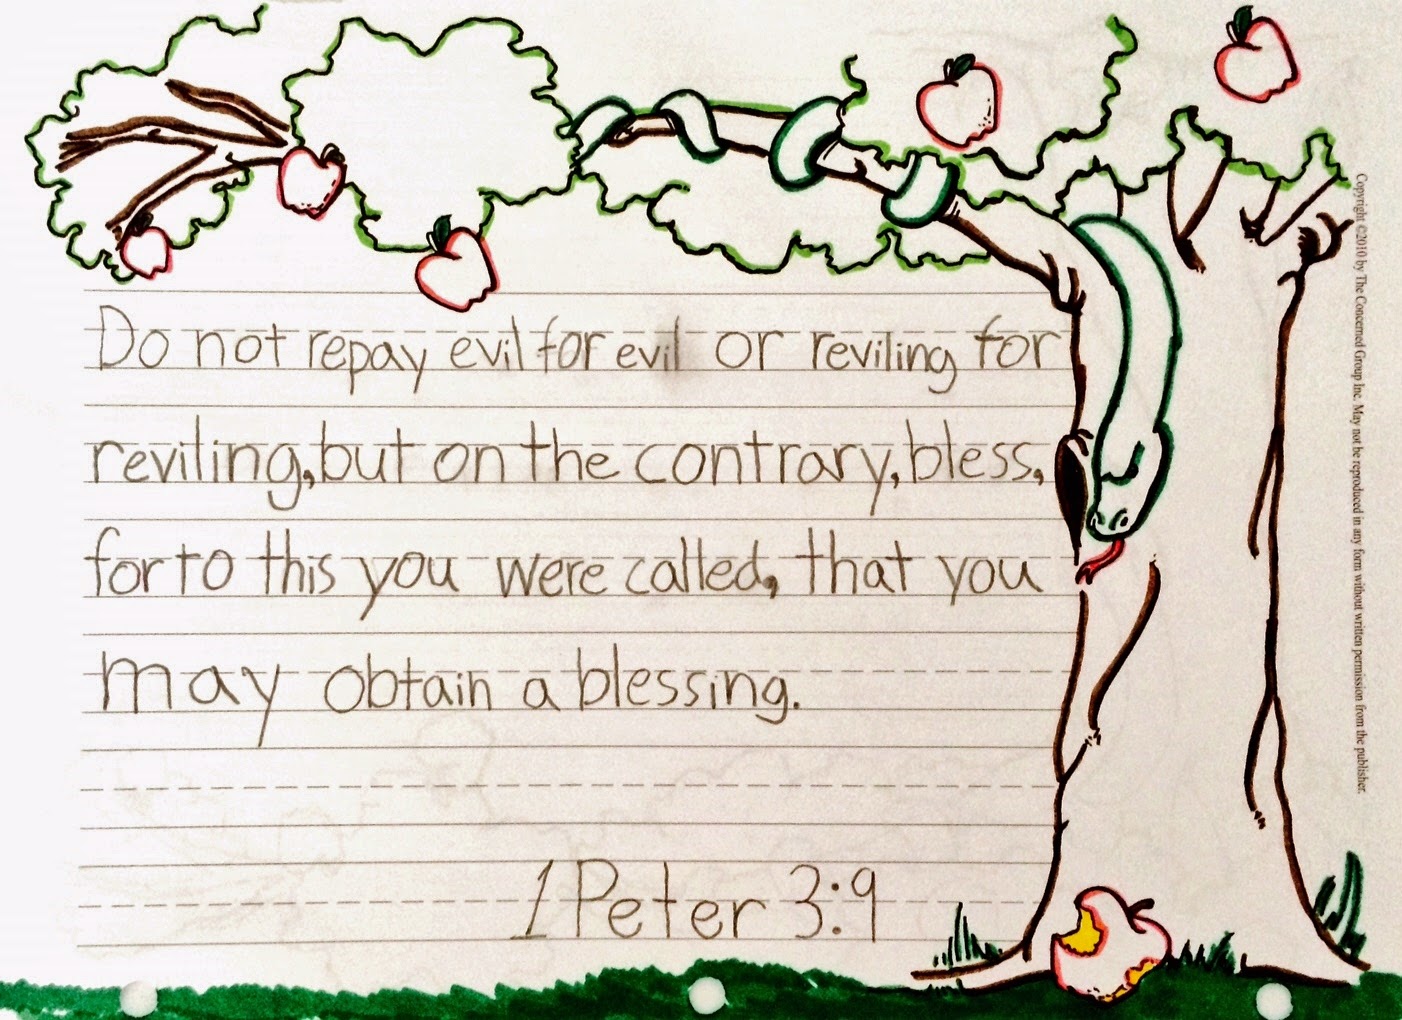 Do not repay evil for evil or reviling for
reviling, but on the contrary, bless,
for to this you were called, that you
may obtain a blessing.
1 Peter 3:9
Copyright ©2010 by The Concerned Group Inc. May not be reproduced in any form without written permission from the publisher.